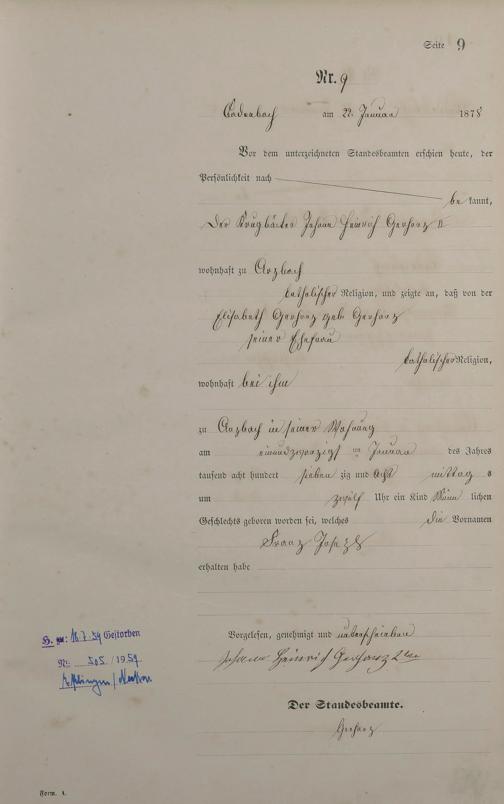 Seite 9
Nr. 9
Cadenbach am 22. Januar 1878
Vor dem unterzeichneten Standesbeamten erschien heute, der
Persönlichkeit nach
be kannt,
der Krugbäcker Johann Heinrich Gerharz II
wohnhaft zu Arzbach
katholischer Religion, und zeigte an, daß von der
Elisabeth Gerharz geb Gerharz
seiner Ehefrau
katholischer Religion,
wohnhaft bei ihm
zu Arzbach in seiner Wohnung
am einundzwanzigsten Januar des Jahres
tausend acht hundert sieben zig und acht mittag s
um zwölf Uhr ein Kind männ lichen
Geschlechts geboren worden sei, welches die Vornamen
Franz Joseph
erhalten habe
Vorgelesen, genehmigt und unterschrieben
Johann Heinrich Gerharz 2ter
Der Standesbeamte.
Gerharz
am: 16.7.59 Gestorben
Nr. 505 / 1959
Form. A.